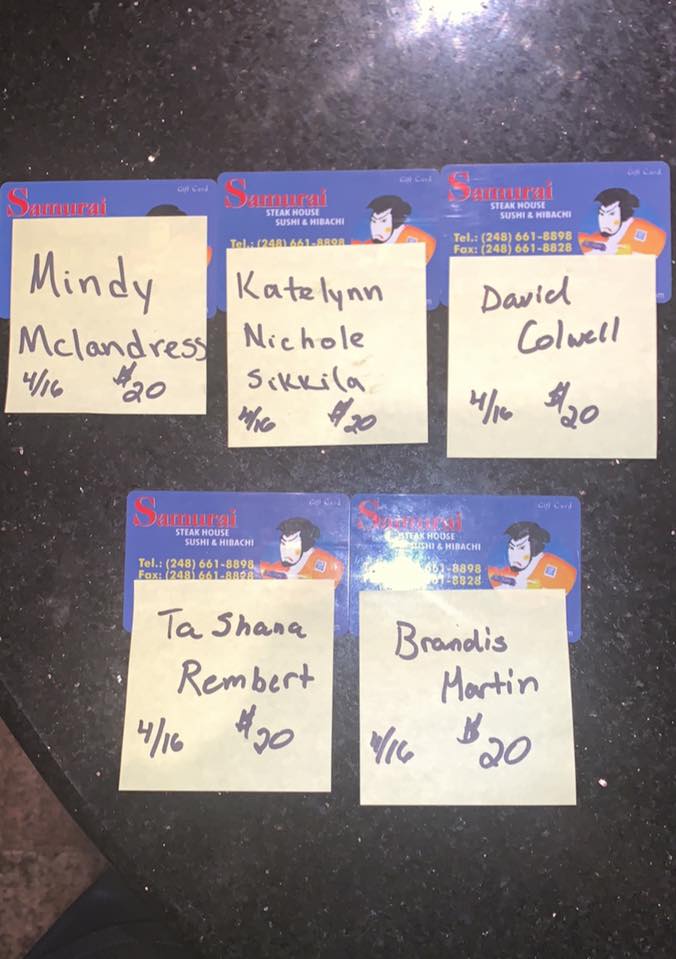 Gift Card
Samurai
Mindy
Mclandress
4/16 $20
Gift Card
Samurai
STEAK HOUSE
SUSHI & HIBACHI
Tel.: (248) 661-8898
Katelynn
Nichole
Sikkila
4/16 $20
Gift Card
Samurai
STEAK HOUSE
SUSHI & HIBACHI
Tel.: (248) 661-8898
Fax: (248) 661-8828
David
Colwell
4/16 $20
Gift Card
Samurai
STEAK HOUSE
SUSHI & HIBACHI
Tel.: (248) 661-8898
Fax: (248) 661-8828
Ta Shana
Rembert
4/16 $20
Gift Card
Samurai
STEAK HOUSE
SUSHI & HIBACHI
661-8898
661-8828
Brandis
Martin
4/16 $20